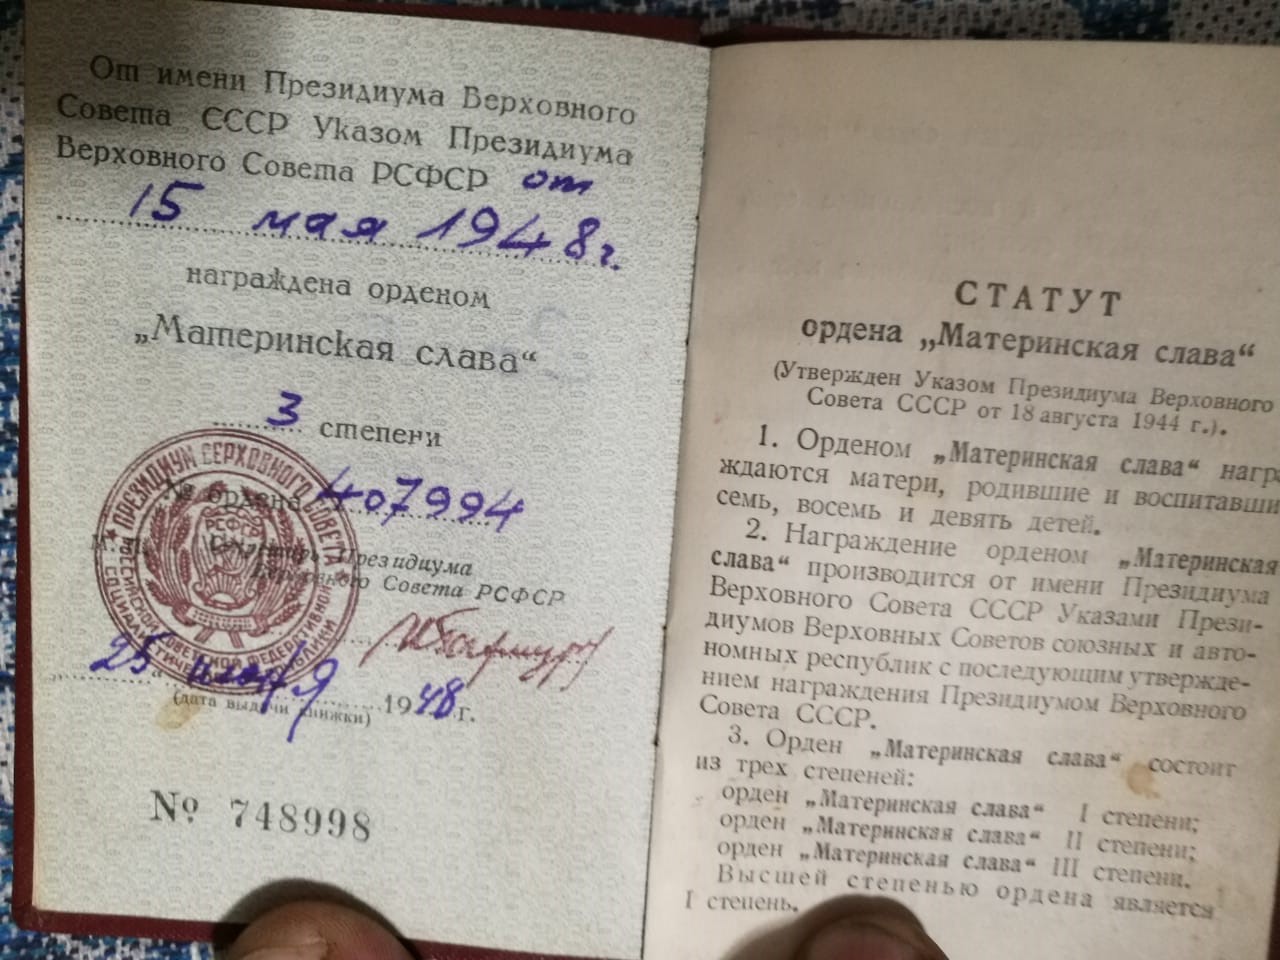 От имени Президиума Верховного
Совета СССР Указом Президиума
Верховного Совета РСФСР от
15 мая 1948 г.
награждена орденом
„Материнская слава“
3 степени
№ ордена 407994
Секретарь Президиума
Верховного Совета РСФСР
25 1948 г.
(дата выдачи книжки)
№ 748998
ПРЕЗИДИУМ ВЕРХОВНОГО СОВЕТА
РСФСР
СТАТУТ
ордена „Материнская слава“
(Утвержден Указом Президиума Верховного
Совета СССР от 18 августа 1944 г.).
1. Орденом „Материнская слава“ награ
ждаются матери, родившие и воспитавши
семь, восемь и девять детей.
2. Награждение орденом „Материнская
слава“ производится от имени Президиума
Верховного Совета СССР Указами Прези-
диумов Верховных Советов союзных и авто-
номных республик с последующим утвержде-
нием награждения Президиумом Верховного
Совета СССР.
3. Орден „Материнская слава“ состоит
из трех степеней:
орден „Материнская слава“ I степени;
орден „Материнская слава“ II степени;
орден „Материнская слава“ III степени.
Высшей степенью ордена является
I степень.